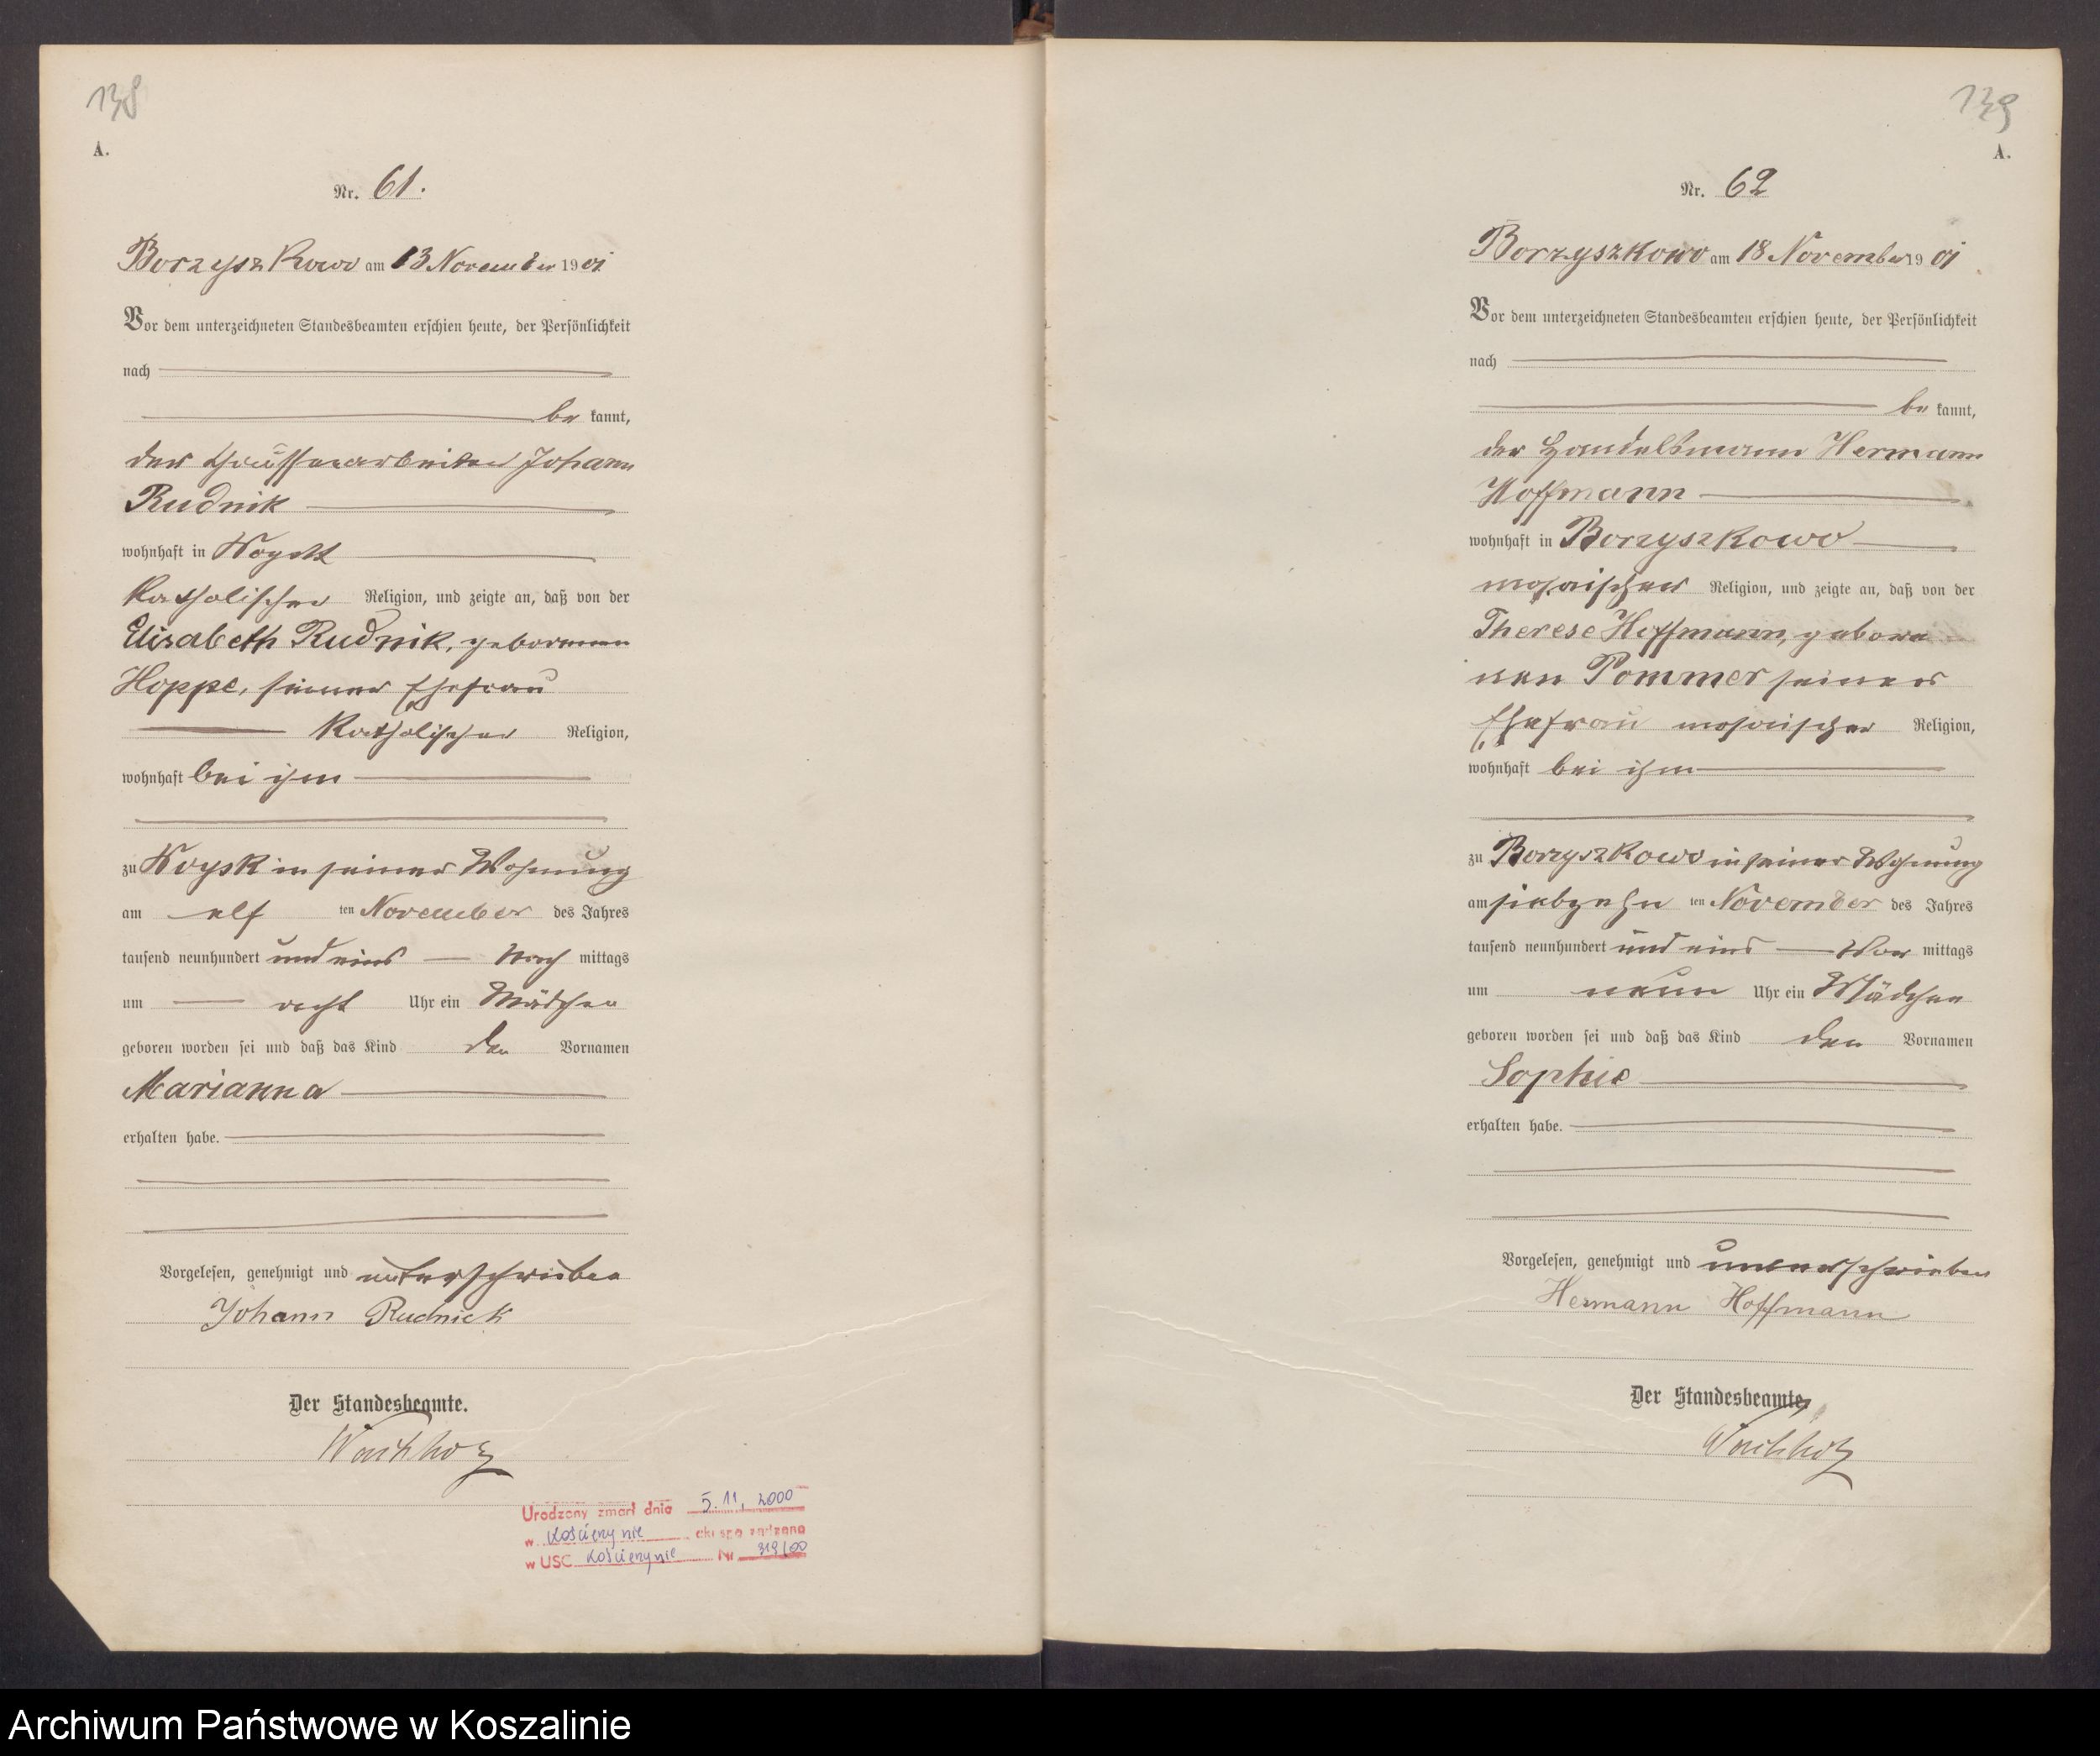 138
A.
Nr. 61.
Borzyszkowo am 13 November 1901.
Vor dem unterzeichneten Standesbeamten erschien heute, der Persönlichkeit
nach
be kannt,
der Chausseearbeiter Johann
Rudnik
wohnhaft in
katholischer Religion, und zeigte an, daß von der
Elisabeth Rudnik, geborenen
Hoppe, seiner Ehefrau
katholischer Religion,
wohnhaft bei ihm
zu Woysk in seiner Wohnung
am elf ten November des Jahres
tausend neunhundert und eins Nach mittags
um acht Uhr ein Mädchen
geboren worden sei und daß das Kind den Vornamen
Marianna
erhalten habe.
Vorgelesen, genehmigt und unterschrieben
Johann Rudnick
Der Standesbeamte.
Urodzony zmarł dnia 5.11.2000
w Kościerzynie akt sporządzono
w USC Kościerzynie Nr 319/00
139
A.
Nr. 62
Borzyszkowo am 18 November 1901
Vor dem unterzeichneten Standesbeamten erschien heute, der Persönlichkeit
nach
be kannt,
der Handelsmann Hermann
Hoffmann
wohnhaft in Borzyszkowo
mosaischer Religion, und zeigte an, daß von der
Therese Hoffmann, gebore
nen Pommer seiner
Ehefrau mosaischer Religion,
wohnhaft bei ihm
zu Borzyszkowo in seiner Wohnung
am siebzehn ten November des Jahres
tausend neunhundert und eins Vor mittags
um neun Uhr ein Mädchen
geboren worden sei und daß das Kind den Vornamen
Sophie
erhalten habe.
Vorgelesen, genehmigt und unterschrieben
Hermann Hoffmann
Der Standesbeamte
Archiwum Państwowe w Koszalinie